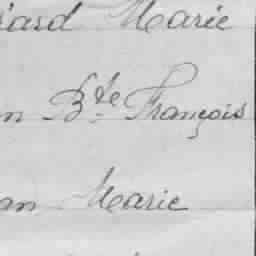 iard Marie
n Bte François
an Marie